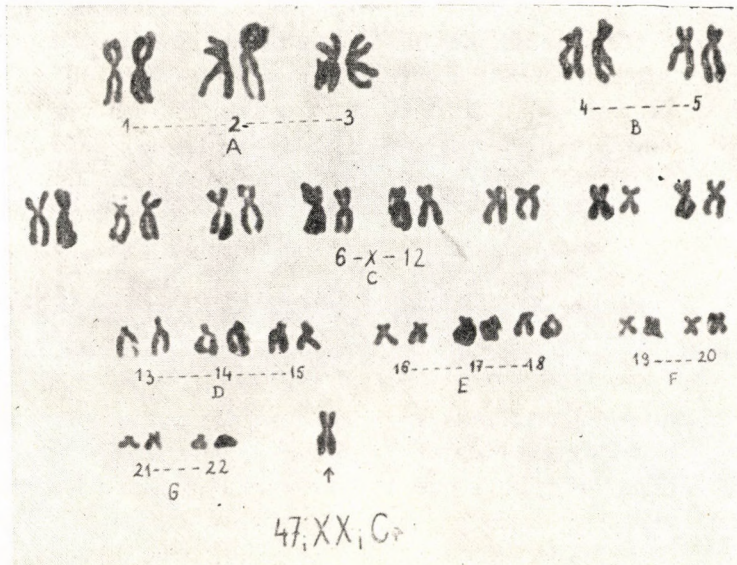 1-----2-----3
A
4-----5
B
6-X-12
C
13-----14-----15
D
16-----17----18
E
19----20
F
21----22
G
↑
47;XX;C+